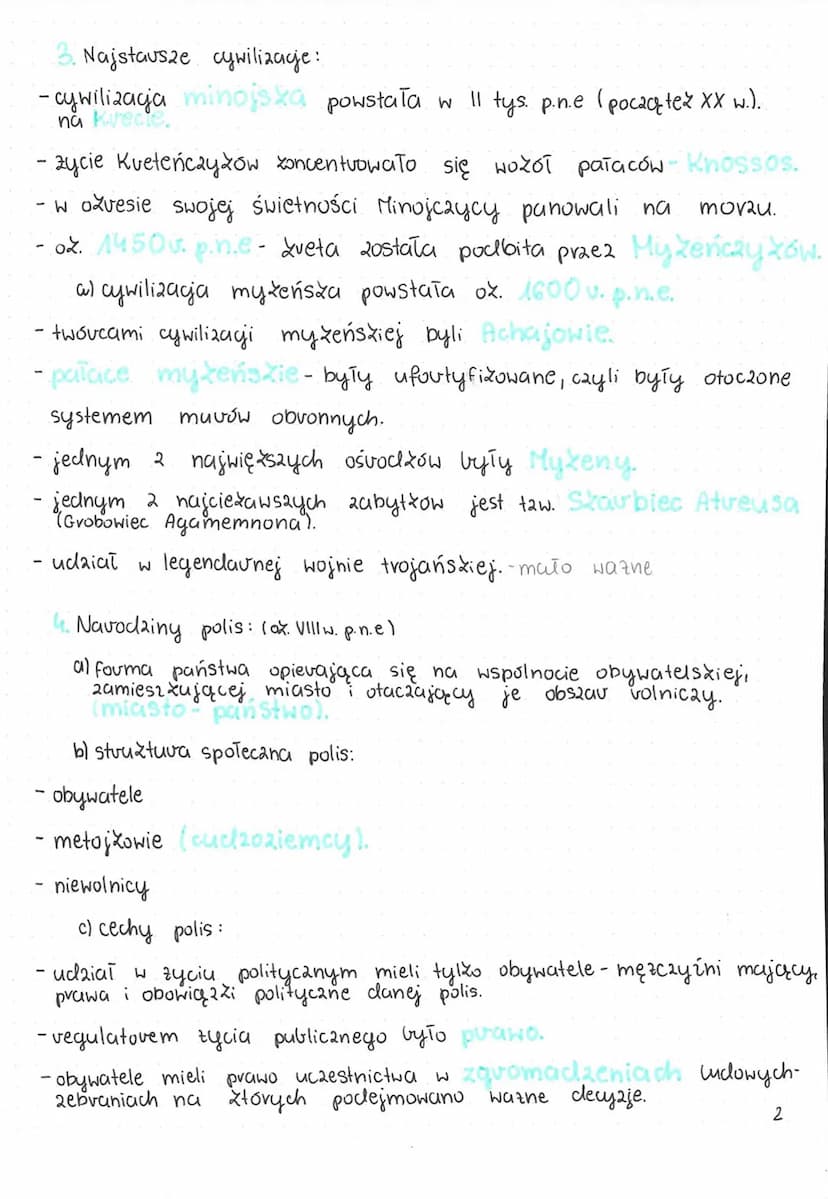 3. Najstarsze cywilizacje:
- cywilizacja minojska powstała w II tys. p.n.e (początek XX w.).
na Krecie.
- życie Kreteńczyków koncentrowało się wokół pałaców - Knossos.
- w okresie swojej świetności Minojczycy panowali na morzu.
- ok. 1450 r. p.n.e - kreta została podbita przez Mykeńczyków.
a) cywilizacja mykeńska powstała ok. 1600 r. p.n.e.
- twórcami cywilizacji mykeńskiej byli Achajowie.
- pałace mykeńskie - były ufortyfikowane, czyli były otoczone
systemem murów obronnych.
- jednym z największych ośrodków były Mykeny.
- jednym z najciekawszych zabytków jest tzw. Skarbiec Atreusa
(Grobowiec Agamemnona).
- udział w legendarnej wojnie trojańskiej. - mało ważne
4. Narodziny polis: (ok. VIII w. p.n.e)
a) forma państwa opierająca się na wspólnocie obywatelskiej,
zamieszkującej miasto i otaczający je obszar rolniczy.
(miasto - państwo).
b) struktura społeczna polis:
- obywatele
- metojkowie (cudzoziemcy).
- niewolnicy
c) cechy polis:
- udział w życiu politycznym mieli tylko obywatele - mężczyźni mający
prawa i obowiązki polityczne danej polis.
- regulatorem życia publicznego było prawo.
- obywatele mieli prawo uczestnictwa w zgromadzeniach ludowych-
zebraniach na których podejmowano ważne decyzje.
2